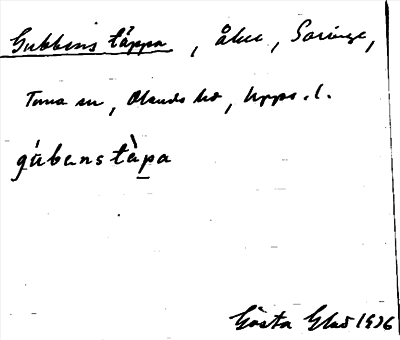 Gubbens täppa, åker, Saringe,
Tuna sn, Olands hd, Upps. l.
gùbenstàpa
Gösta Glad 1936